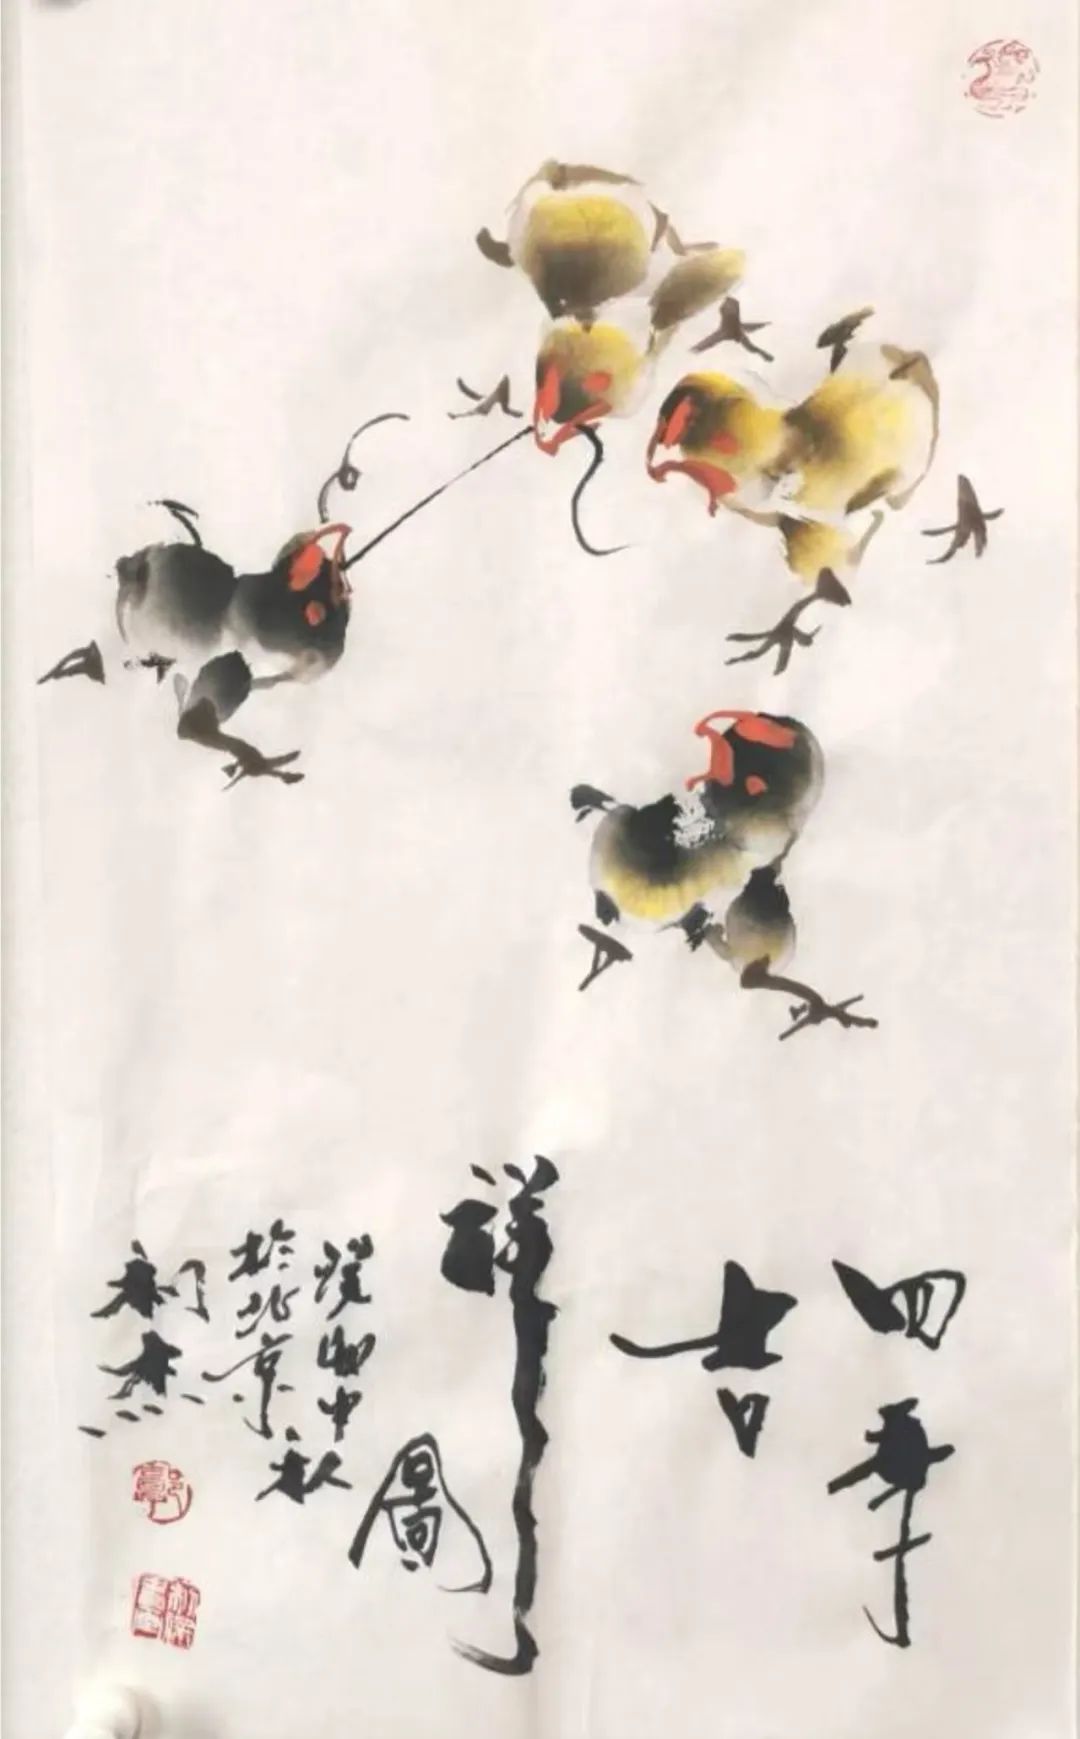 四季
吉
祥
圖
卯中秋
於北京
杰